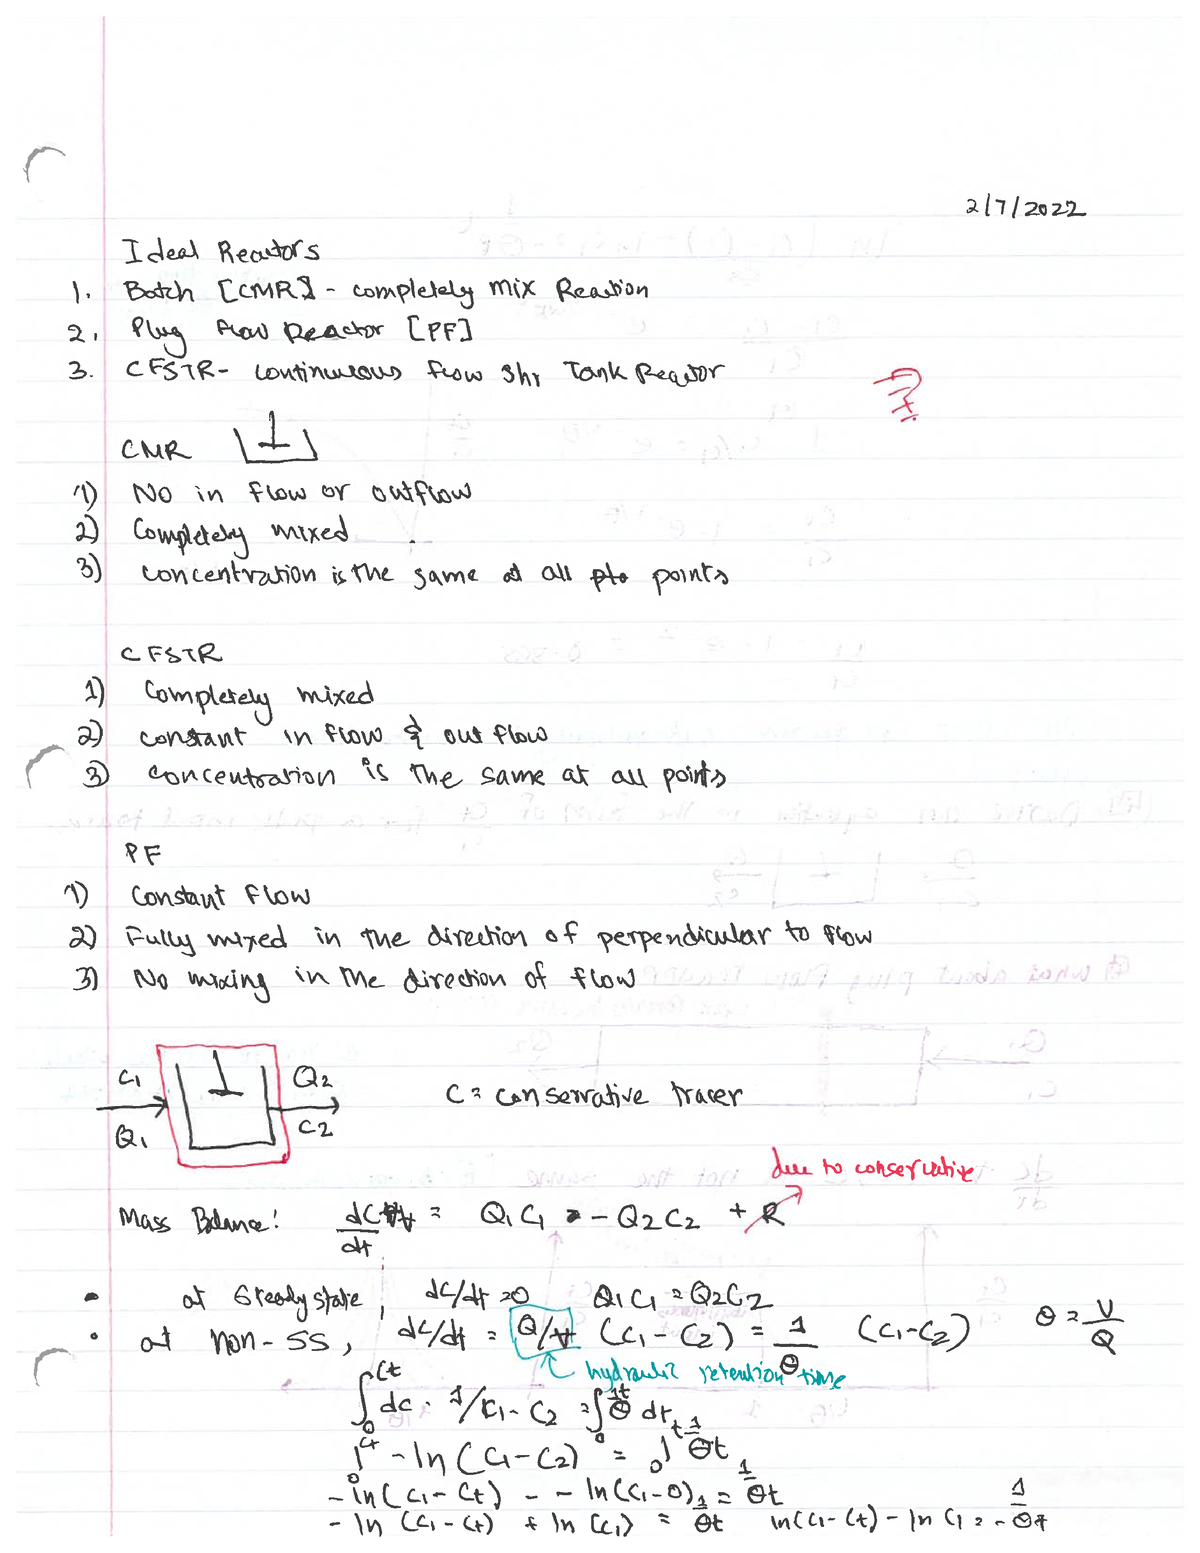 2/7/2022
Ideal Reactors
1. Batch [CMR] - completely mix Reaction
2. Plug flow Reactor [PF]
3. CFSTR - continuous flow Shr Tank Reactor
?
CMR
1) No in flow or outflow
2) Completely mixed
3) concentration is the same at all points
CFSTR
1) Completely mixed
2) constant in flow & out flow
3) concentration is the same at all points
PF
1) Constant flow
2) Fully mixed in the direction of perpendicular to flow
3) No mixing in the direction of flow
C1 Q2
Q1 C2
C = conservative tracer
due to conservative
Mass Balance: dC∀/dt = Q1C1 - Q2C2 + R
• at Steady state, dC/dt = 0 Q1C1 = Q2C2
• at non-SS, dC/dt = Q/∀ (C1 - C2) = 1/θ (C1-C2) θ = V/Q
hydraulic retention time
∫₀^Ct dC · 1/C1-C2 = ∫₀^t 1/θ dt
|₀^Ct -ln(C1-C2) = ₀|^t 1/θ t
-ln(C1-Ct) - - ln(C1-0) = 1/θ t
-ln(C1-Ct) + ln(C1) = 1/θ t ln(C1-Ct) - ln C1 = - 1/θ t